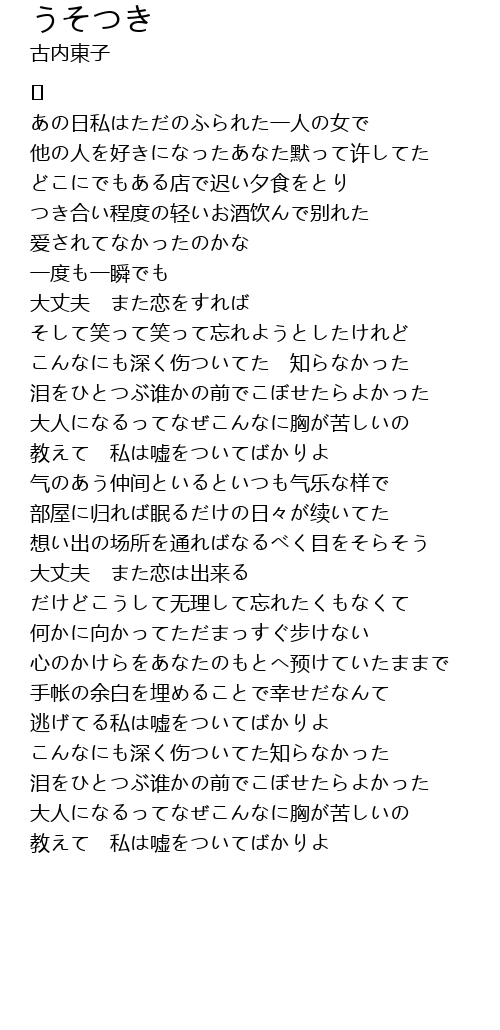 うそつき
古内東子
[]
あの日私はただのふられた一人の女で
他の人を好きになったあなた默って许してた
どこにでもある店で迟い夕食をとり
つき合い程度の轻いお酒饮んで别れた
爱されてなかったのかな
一度も一瞬でも
大丈夫　また恋をすれば
そして笑って笑って忘れようとしたけれど
こんなにも深く伤ついてた　知らなかった
泪をひとつぶ谁かの前でこぼせたらよかった
大人になるってなぜこんなに胸が苦しいの
教えて　私は嘘をついてばかりよ
气のあう仲间といるといつも气乐な样で
部屋に归れば眠るだけの日々が续いてた
想い出の场所を通ればなるべく目をそらそう
大丈夫　また恋は出来る
だけどこうして无理して忘れたくもなくて
何かに向かってただまっすぐ步けない
心のかけらをあなたのもとへ预けていたままで
手帐の余白を埋めることで幸せだなんて
逃げてる私は嘘をついてばかりよ
こんなにも深く伤ついてた知らなかった
泪をひとつぶ谁かの前でこぼせたらよかった
大人になるってなぜこんなに胸が苦しいの
教えて　私は嘘をついてばかりよ